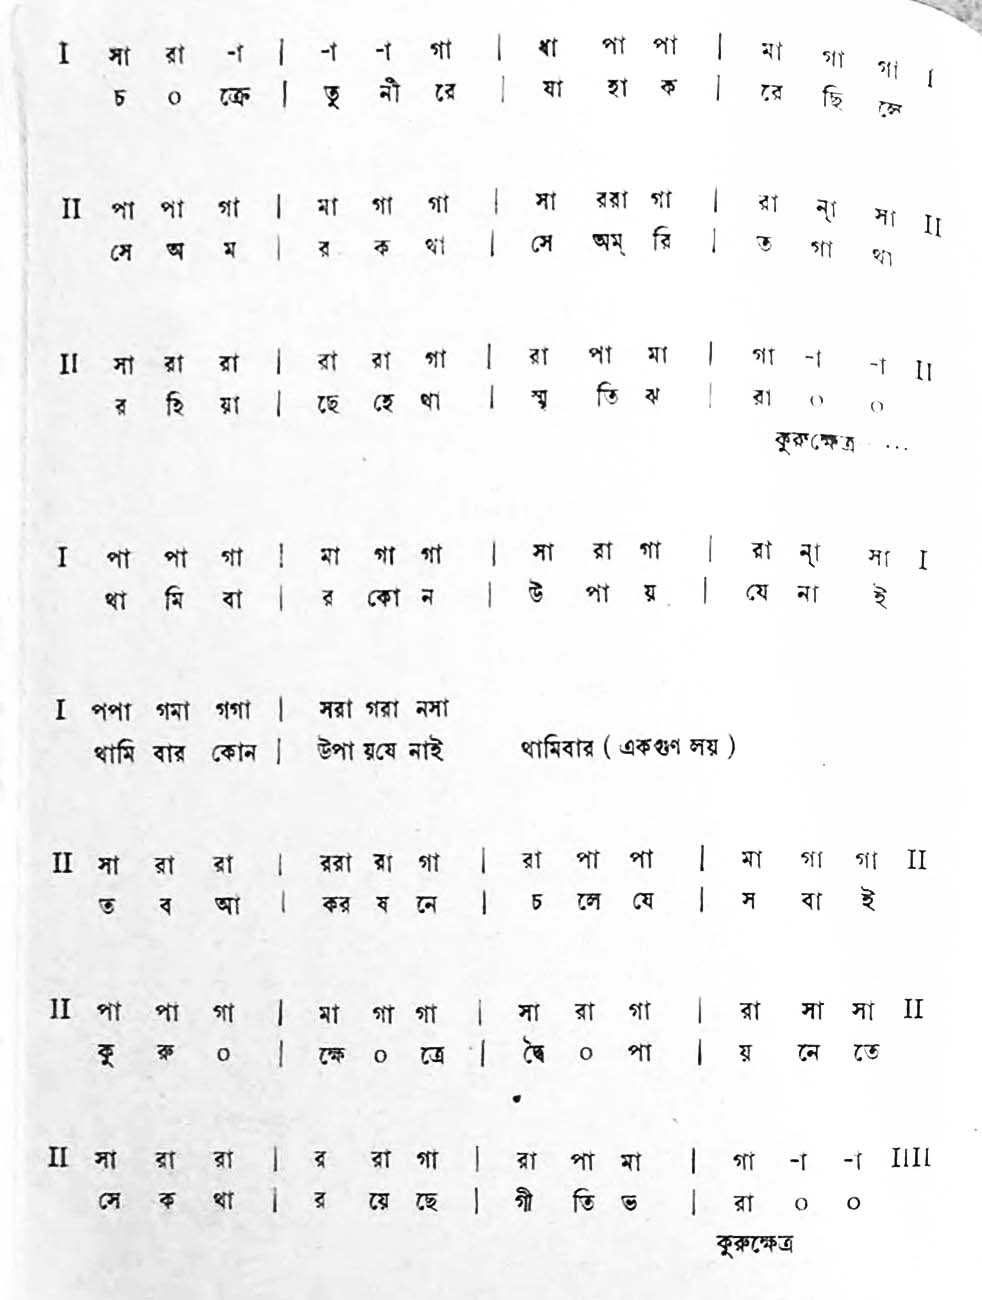 I সা রা -া | -া -া গা | ধা পা পা | মা গা গা I
চ ০ ক্রে | তু নী রে | যা হা ক | রে ছি লে
II পা পা গা | মা গা গা | সা ররা গা | রা ন্া সা II
সে অ ম | র ক থা | সে অম্ রি | ত গা থা
II সা রা রা | রা রা গা | রা পা মা | গা -া -া II
র হি য়া | ছে হে থা | স্মৃ তি ঝ | রা ০ ০
কুরুক্ষেত্র ...
I পা পা গা | মা গা গা | সা রা গা | রা ন্া সা I
থা মি বা | র কো ন | উ পা য় | যে না ই
I পপা গমা গগা | সরা গরা নসা
থামি বার কোন | উপা য়যে নাই থামিবার ( একগুণ লয় )
II সা রা রা | ররা রা গা | রা পা পা | মা গা গা II
ত ব আ | কর ষ নে | চ লে যে | স বা ই
II পা পা গা | মা গা গা | সা রা গা | রা সা সা II
কু রু ০ | ক্ষে ০ ত্রে | দ্বৈ ০ পা | য় নে তে
II সা রা রা | র রা গা | রা পা মা | গা -া -া IIII
সে ক থা | র য়ে ছে | গী তি ভ | রা ০ ০
কুরুক্ষেত্র